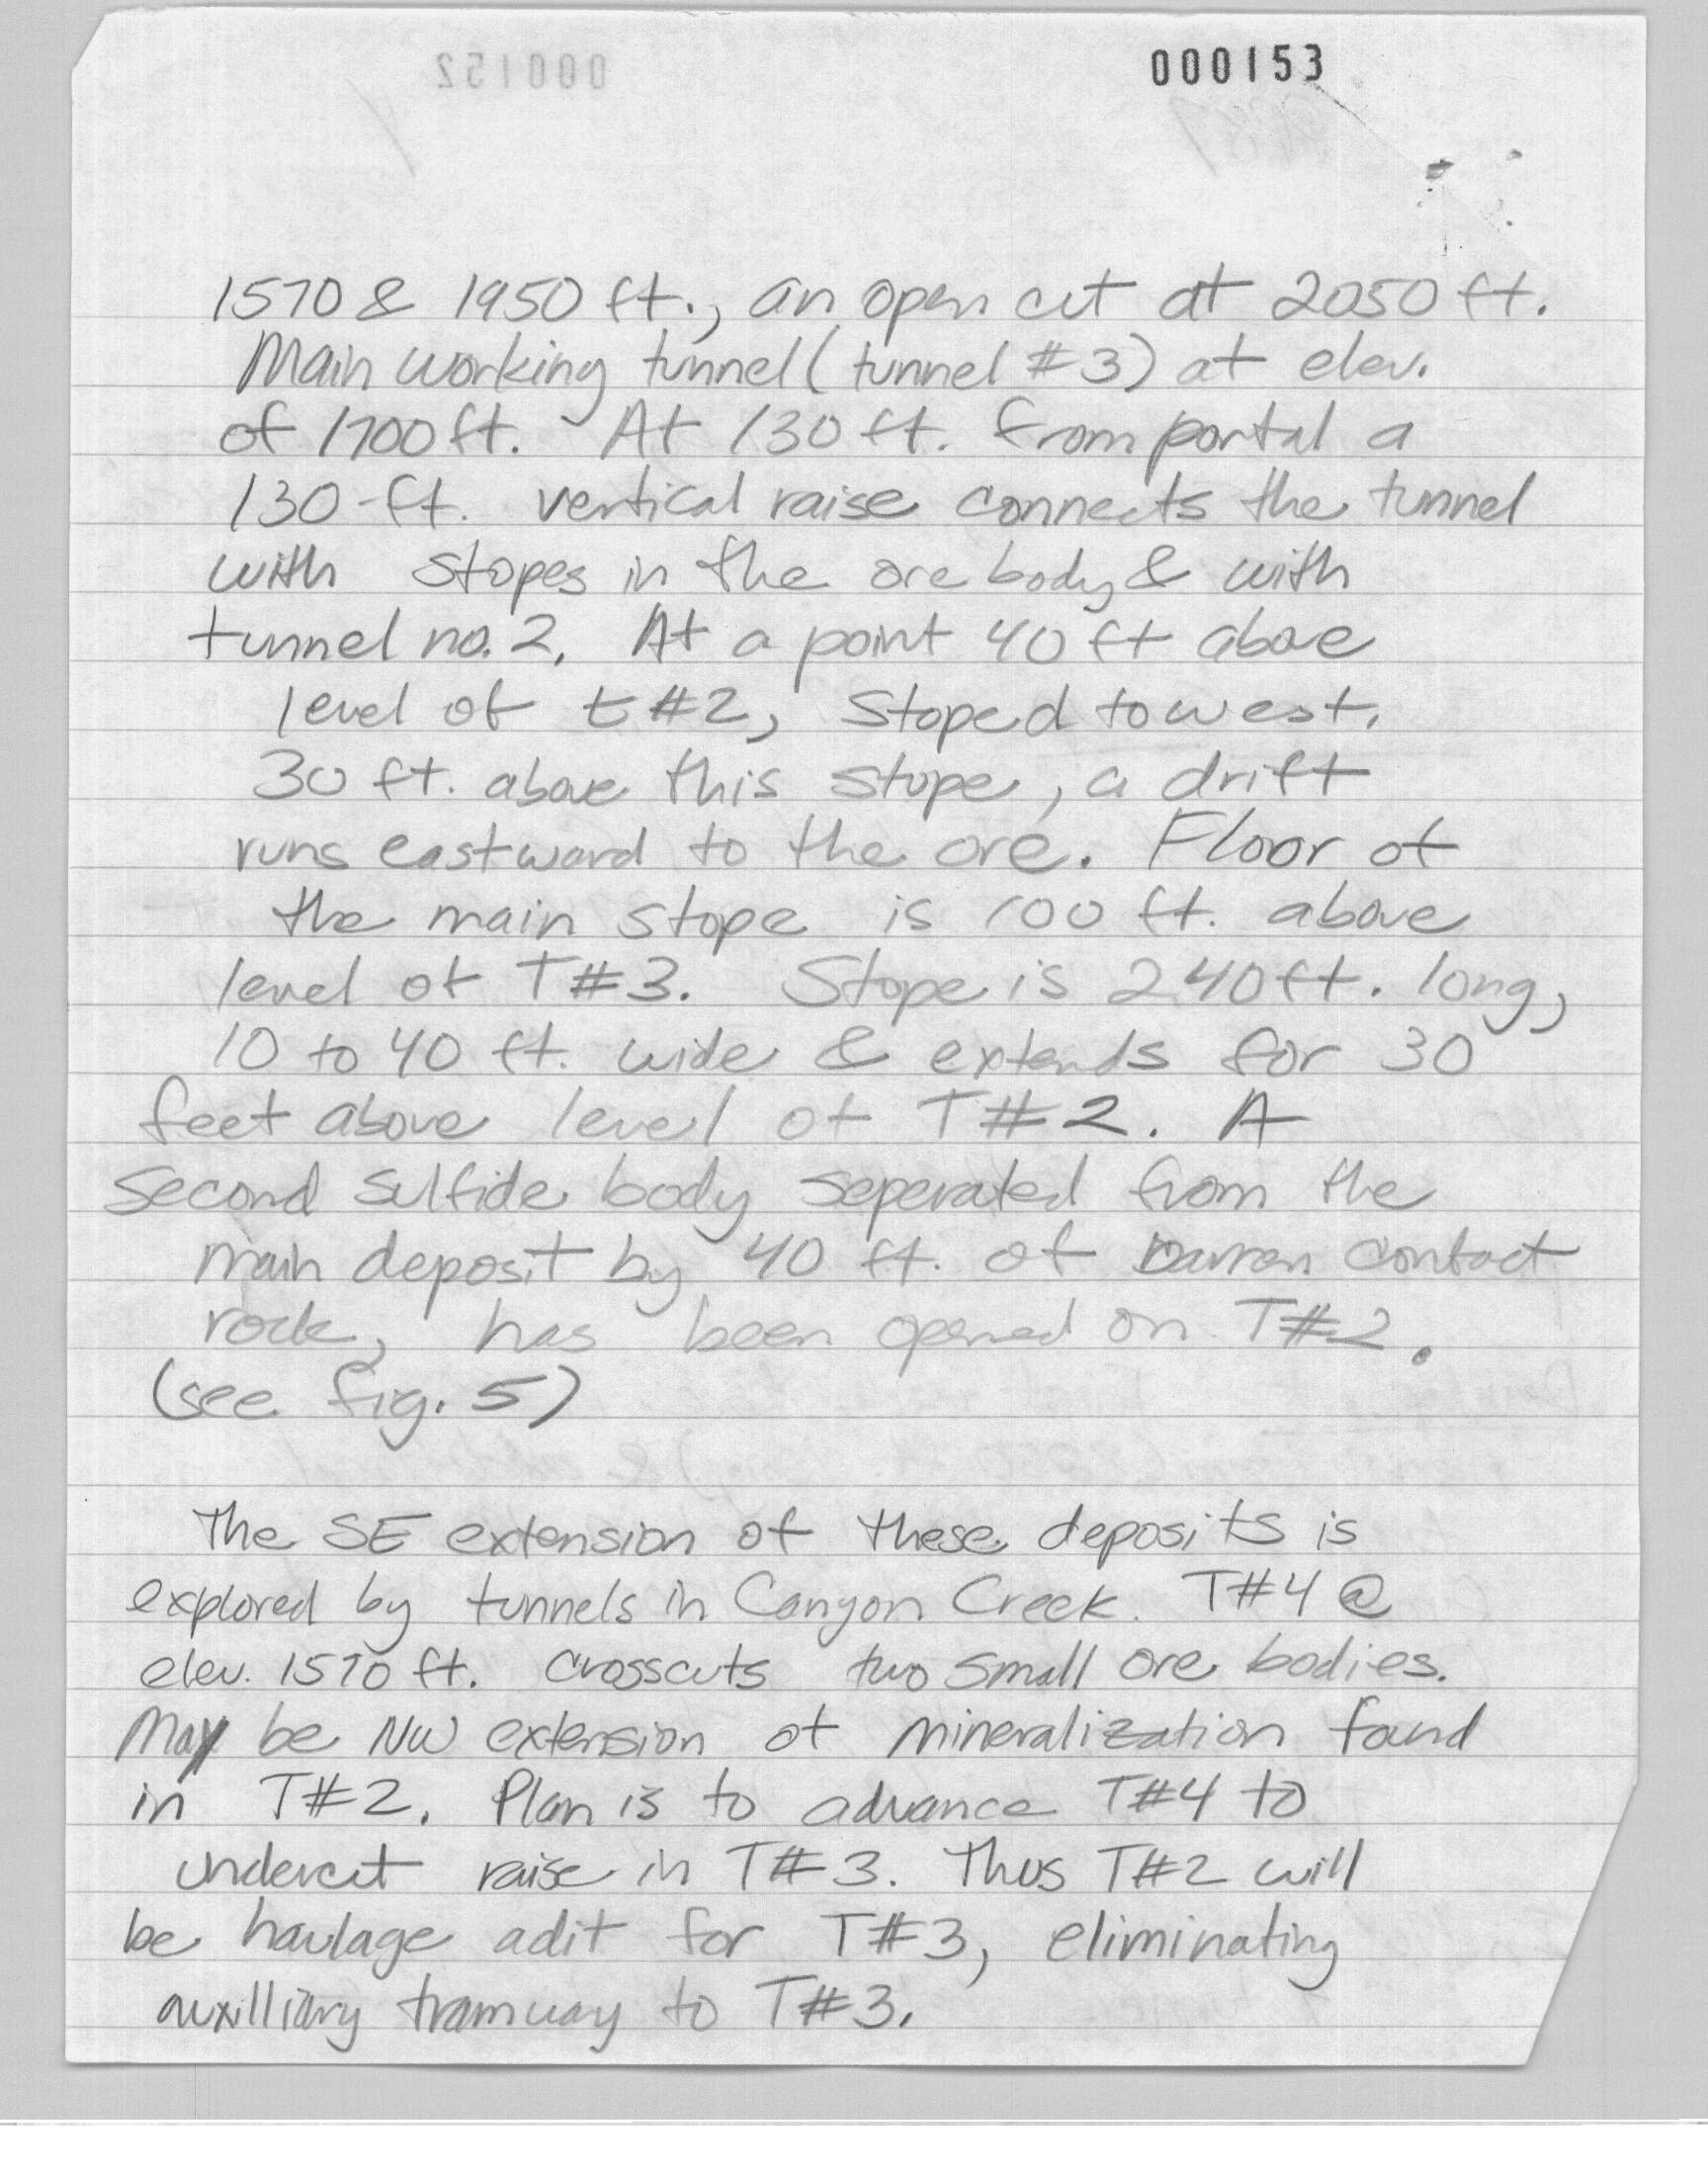 000152
000153
1570 & 1950 ft., an open cut at 2050 ft.
Main working tunnel (tunnel #3) at elev.
of 1700 ft. At 130 ft. from portal a
130-ft. vertical raise connects the tunnel
with stopes in the ore body & with
tunnel no. 2. At a point 40 ft above
level of t#2, stoped to west.
30 ft. above this stope, a drift
runs eastward to the ore. Floor of
the main stope is 100 ft. above
level of T#3. Stope is 240 ft. long,
10 to 40 ft. wide & extends for 30
feet above level of T#2. A
second sulfide body seperated from the
main deposit by 40 ft. of barren contact
rock, has been opened on T#2.
(see fig. 5)
The SE extension of these deposits is
explored by tunnels in Canyon Creek. T#4 @
elev. 1570 ft. crosscuts two small ore bodies.
May be NW extension of mineralization found
in T#2. Plan is to advance T#4 to
undercut raise in T#3. Thus T#2 will
be haulage adit for T#3, eliminating
auxilliary tramway to T#3.